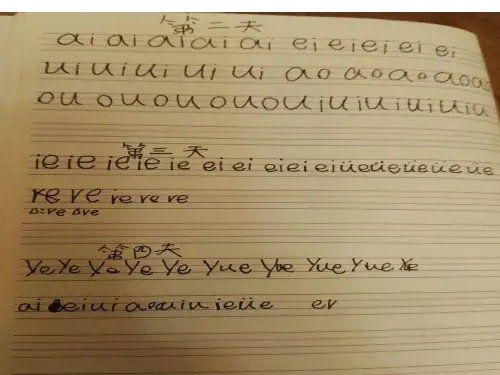 第二天
ai ai ai ai ai ei ei ei ei ei
ui ui ui ui ui ao ao ao ao ao
ou ou ou ou ou iu iu iu iu iu
第三天
ie ie ie ie ie ei ei ei ei ei üe üe üe üe üe
re re re re re
re re
第四天
Ye Ye Ye Ye Ye Yue Yue Yue Yue Ye
ai ei ui ao ou iu ie üe er